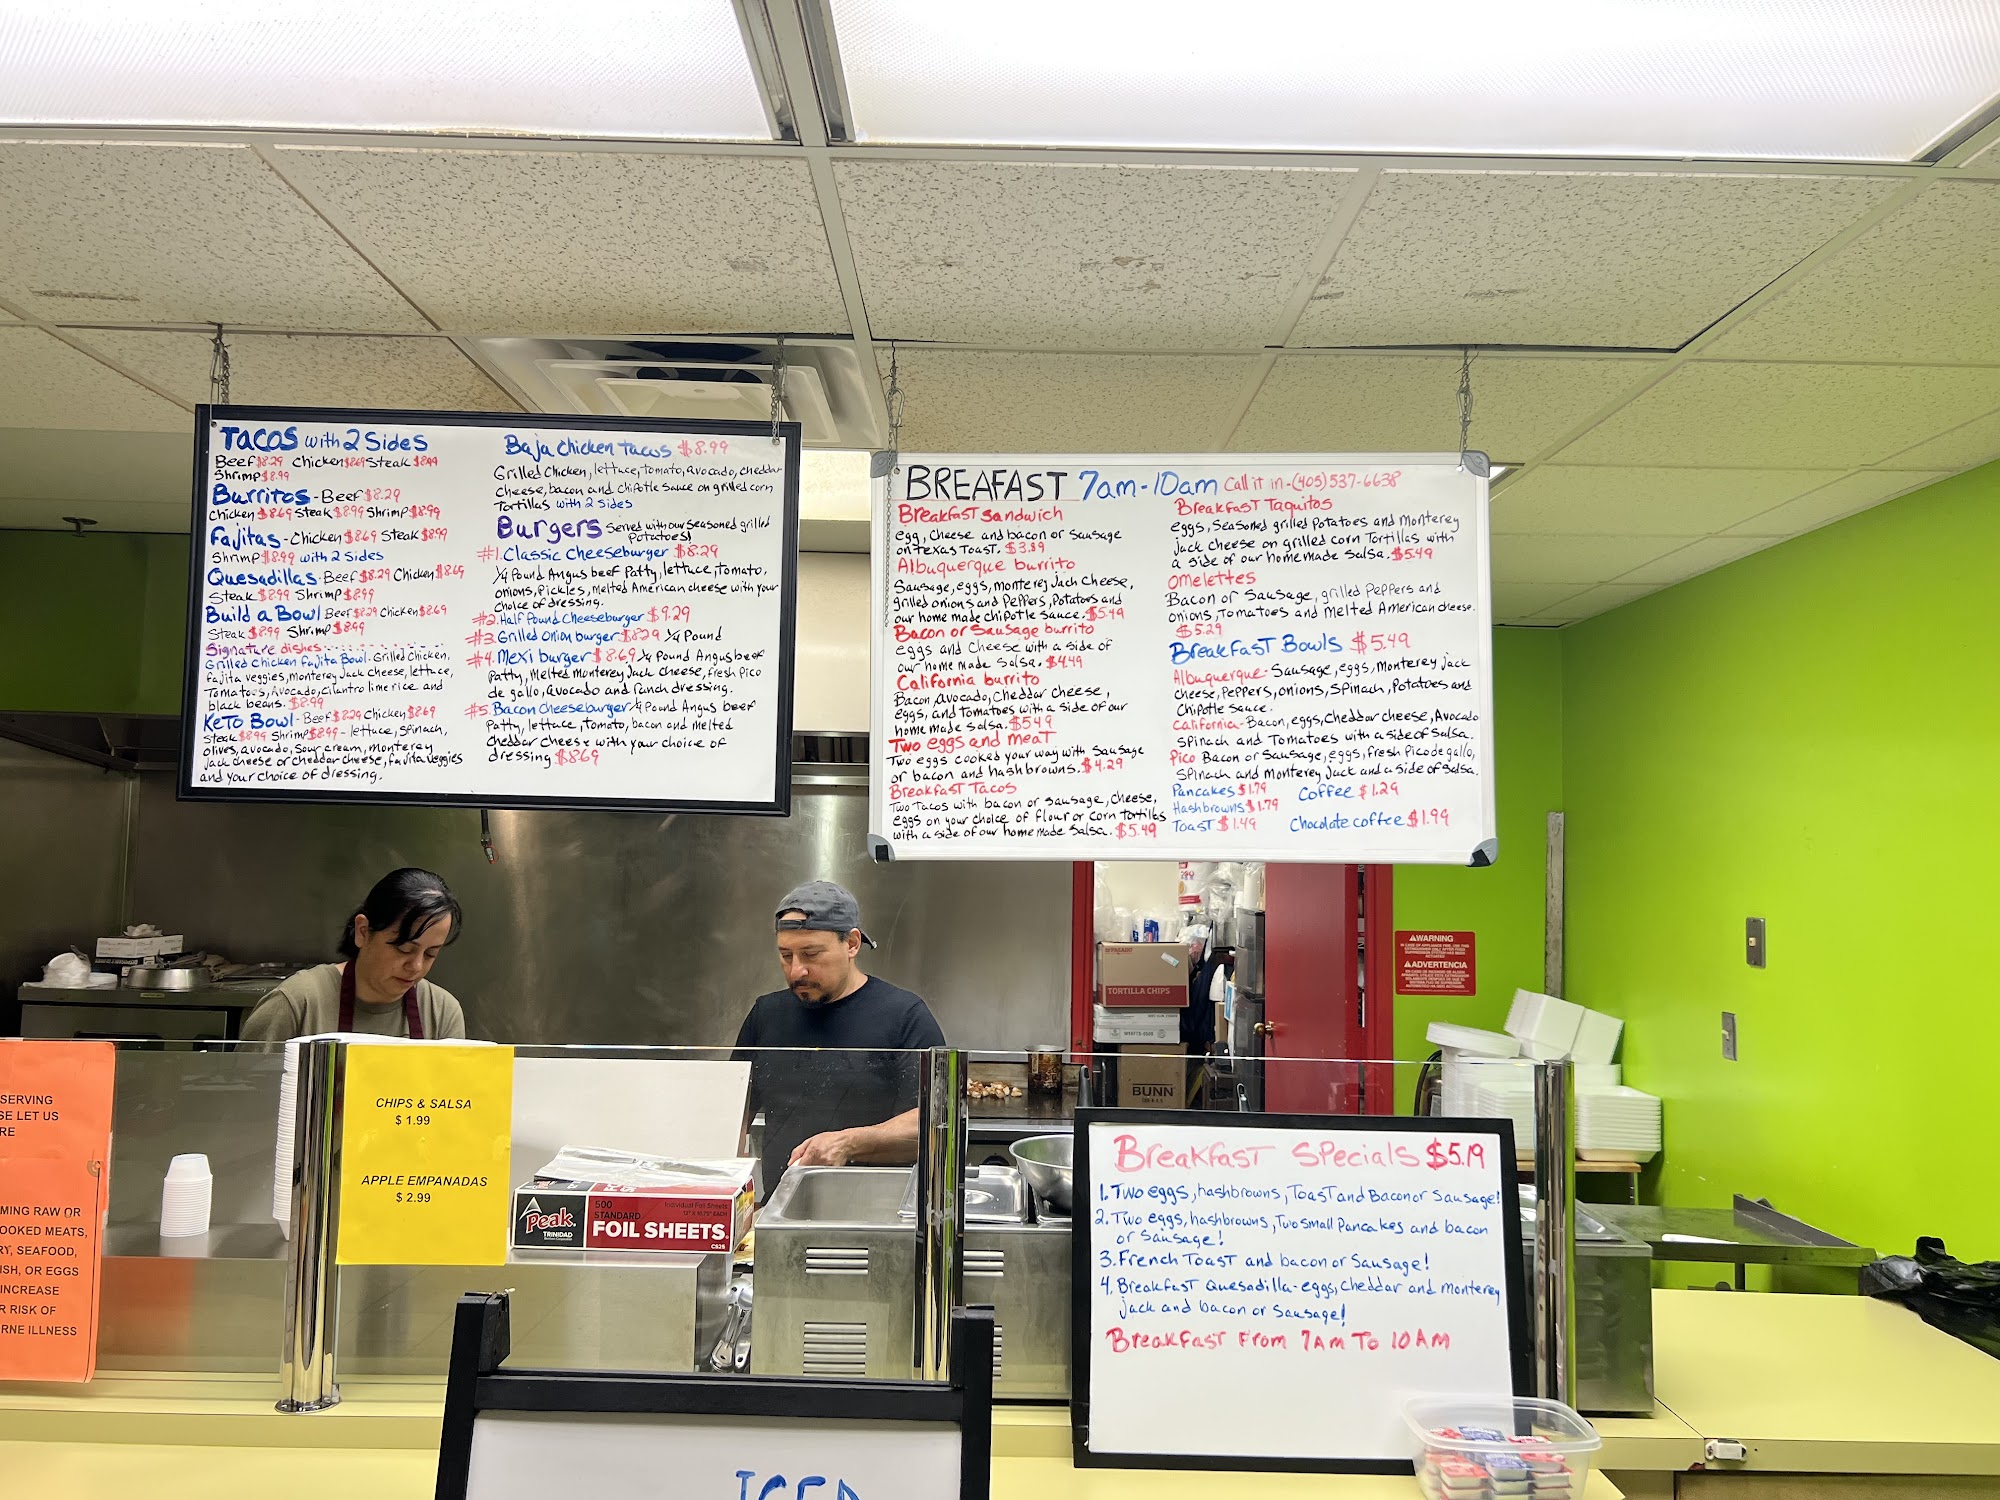 Tacos with 2 Sides
Beef $8.29 Chicken $8.69 Steak $8.99
Shrimp $8.99
Burritos - Beef $8.29
Chicken $8.69 Steak $8.99 Shrimp $8.99
Fajitas - Chicken $8.69 Steak $8.99
Shrimp $8.99 with 2 Sides
Quesadillas - Beef $8.29 Chicken $8.69
Steak $8.99 Shrimp $8.99
Build a Bowl Beef $8.29 Chicken $8.69
Steak $8.99 Shrimp $8.99
Signature dishes
Grilled Chicken Fajita Bowl - Grilled Chicken,
fajita veggies, monterey Jack cheese, lettuce,
Tomatoes, Avocado, cilantro lime rice and
black beans. $8.99
Keto Bowl - Beef $8.29 Chicken $8.69
Steak $8.99 Shrimp $8.99 - lettuce, spinach,
olives, avocado, sour cream, monterey
Jack cheese or cheddar cheese, fajita veggies
and your choice of dressing.
Baja Chicken tacos $8.99
Grilled Chicken, lettuce, tomato, avocado, cheddar
cheese, bacon and chipotle sauce on grilled corn
Tortillas with 2 Sides
Burgers Served with our seasoned grilled
Potatoes!
#1. Classic Cheeseburger $8.29
1/4 Pound Angus beef Patty, lettuce, tomato,
onions, Pickles, Melted American cheese with your
choice of dressing.
#2. Half Pound Cheeseburger $9.29
#3. Grilled Onion burger $8.29 1/4 Pound
#4. Mexi burger $8.69 1/4 Pound Angus beef
Patty, Melted Monterey Jack Cheese, fresh Pico
de gallo, Avocado and ranch dressing.
#5. Bacon Cheeseburger 1/4 Pound Angus beef
Patty, lettuce, tomato, bacon and melted
cheddar cheese with your choice of
dressing $8.69
BREAFAST 7am-10am Call it in - (405) 537-6638
Breakfast Sandwich
egg, cheese and bacon or sausage
on Texas Toast. $3.99
Albuquerque burrito
Sausage, eggs, monterey Jack cheese,
grilled onions and Peppers, Potatoes and
our home made chipotle sauce. $5.49
Bacon or Sausage burrito
eggs and Cheese with a side of
our home made Salsa. $4.49
California burrito
Bacon, avocado, cheddar cheese,
eggs, and tomatoes with a side of our
home made salsa. $5.49
Two eggs and meat
Two eggs cooked your way with Sausage
or bacon and hashbrowns. $4.29
Breakfast Tacos
Two Tacos with bacon or sausage, cheese,
eggs on your choice of flour or corn Tortillas
with a side of our home made salsa. $5.49
Breakfast Taquitos
eggs, Seasoned grilled Potatoes and Monterey
Jack cheese on grilled corn Tortillas with
a side of our home made Salsa. $5.49
Omelettes
Bacon or Sausage, grilled Peppers and
onions, Tomatoes and Melted American cheese.
$5.29
Breakfast Bowls $5.49
Albuquerque - Sausage, eggs, Monterey Jack
cheese, Peppers, onions, Spinach, Potatoes and
Chipotle Sauce.
California - Bacon, eggs, cheddar cheese, Avocado
Spinach and Tomatoes with a side of Salsa.
Pico Bacon or Sausage, eggs, fresh Pico de gallo,
Spinach and Monterey Jack and a side of Salsa.
Pancakes $1.79 Coffee $1.29
Hashbrowns $1.79
Toast $1.49 Chocolate coffee $1.99
WARNING
ADVERTENCIA
TORTILLA CHIPS
BUNN
SERVING
SE LET US
RE
MING RAW OR
OOKED MEATS,
RY, SEAFOOD,
ISH, OR EGGS
INCREASE
R RISK OF
RNE ILLNESS
CHIPS & SALSA
$ 1.99
APPLE EMPANADAS
$ 2.99
Peak
TRINIDAD
500
STANDARD
Individual Foil Sheets
FOIL SHEETS
CS25
Breakfast Specials $5.19
1. Two eggs, hashbrowns, Toast and Bacon or Sausage!
2. Two eggs, hashbrowns, Two small Pancakes and bacon
or sausage!
3. French Toast and bacon or Sausage!
4. Breakfast Quesadilla - eggs, Cheddar and Monterey
Jack and bacon or Sausage!
Breakfast From 7AM To 10AM
ICED